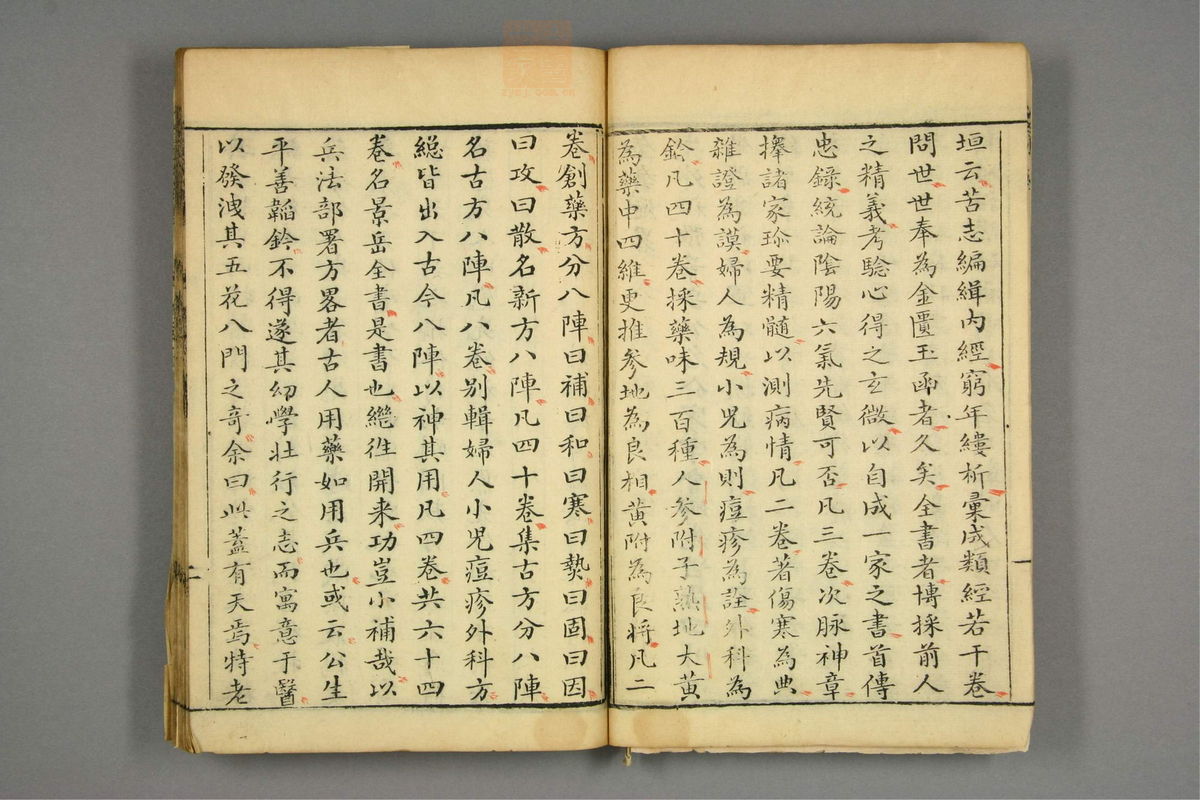 垣云苦志編緝内經窮年縷析彚成類經若干卷
問世世奉為金匱玉函者久矣全書者博採前人
之精義考驗心得之玄微以自成一家之書首傳
忠錄統論陰陽六氣先賢可否凡三卷次脉神章
擇諸家珍要精髓以測病情凡二卷著傷寒為典
雜證為謨婦人為規小兒為則痘疹為詮外科為
鈐凡四十卷採藥味三百種人參附子熟地大黃
為藥中四維更推參地為良相黃附為良将凡二
卷創藥方分八陣曰補曰和曰寒曰𤍠曰固曰因
曰攻曰散名新方八陣凡四十卷集古方分八陣
名古方八陣凡八卷别輯婦人小兒痘疹外科方
緫皆出入古今八陣以神其用凡四卷共六十四
卷名景岳全書是書也繼徃開来功豈小補哉以
兵法部署方畧者古人用藥如用兵也或云公生
平善韜鈐不得遂其㓜學壯行之志而寓意于醫
以發洩其五花八門之奇余曰此蓋有天焉特老